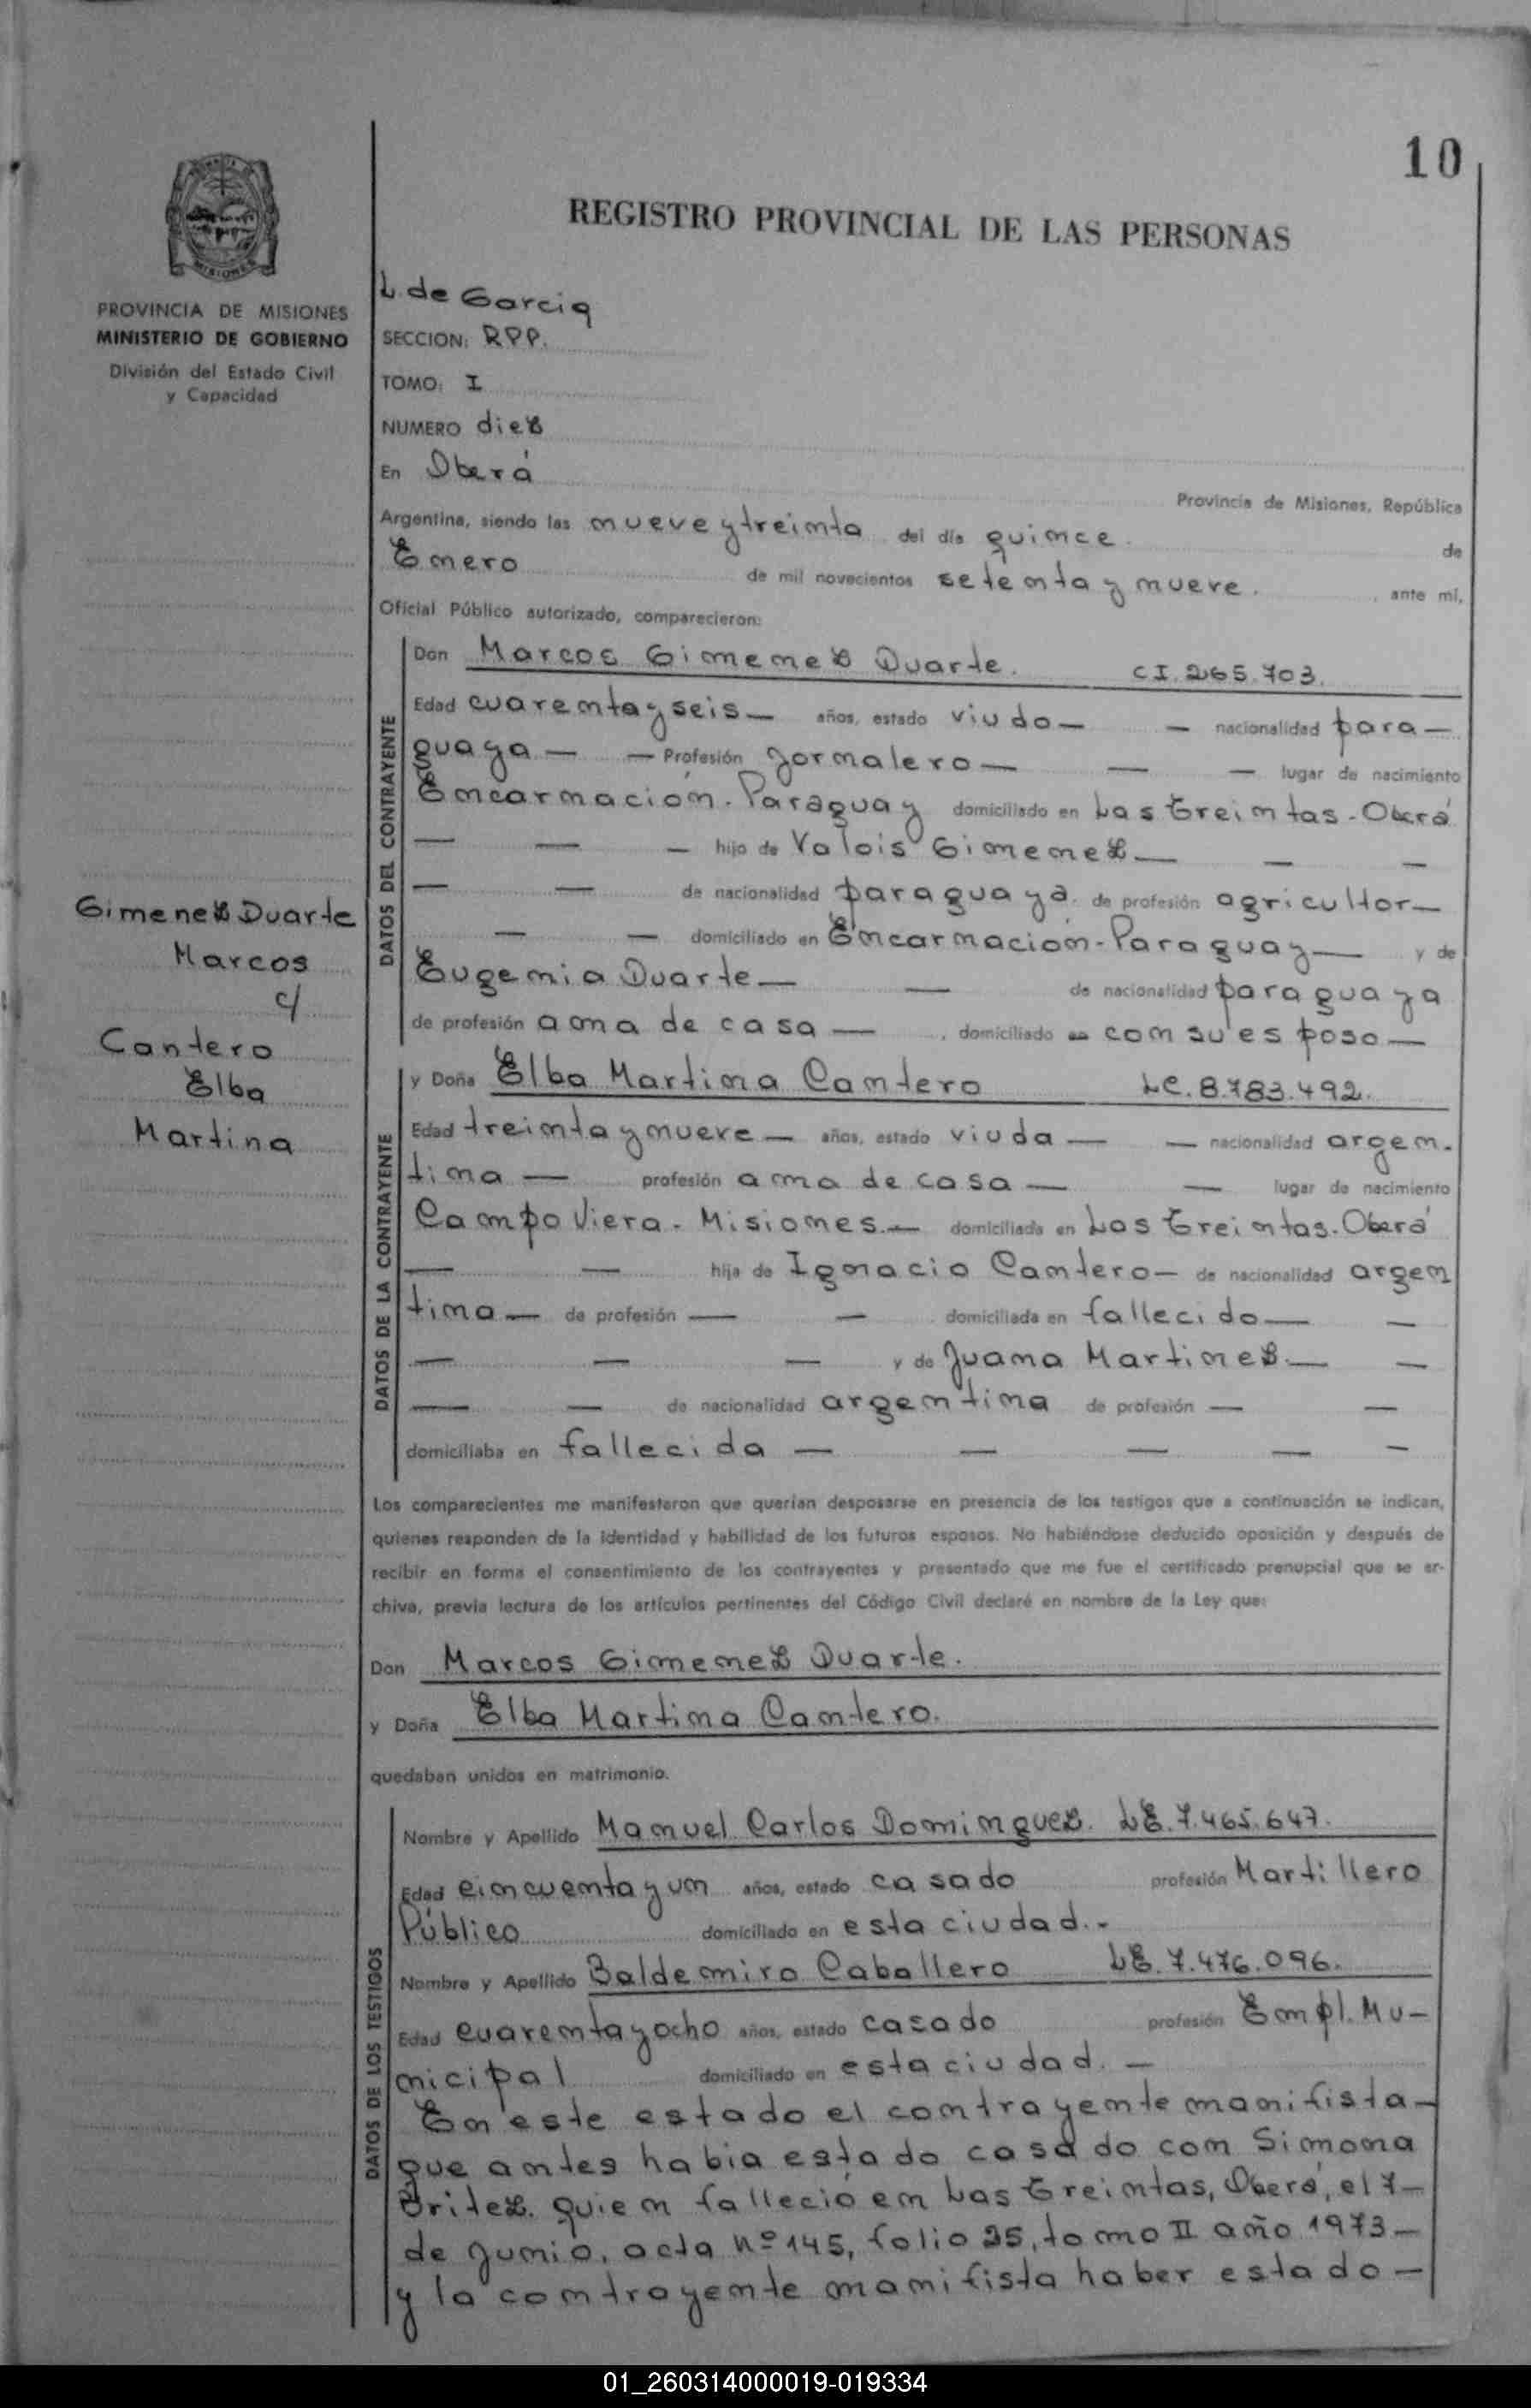 10
REGISTRO PROVINCIAL DE LAS PERSONAS
MISIONES
PROVINCIA DE MISIONES
MINISTERIO DE GOBIERNO
División del Estado Civil
y Capacidad
L. de Garcia
SECCION: RPP.
TOMO: I
NUMERO diez
En Oberá
Provincia de Misiones, República
Argentina, siendo las nueve y treinta del día quince de
Enero de mil novecientos setenta y nueve. , ante mí,
Oficial Público autorizado, comparecieron:
DATOS DEL CONTRAYENTE
Don Marcos Gimenez Duarte. CI. 265.703.
Edad cuarenta y seis — años, estado viudo — — nacionalidad para—
guaya — — Profesión Jornalero — — — lugar de nacimiento
Encarnación. Paraguay domiciliado en Los Treintas - Oberá
— — — hijo de Valois Gimenez — — —
— — de nacionalidad paraguaya. de profesión agricultor —
— — domiciliado en Encarnación - Paraguay — y de
Eugenia Duarte — — de nacionalidad paraguaya
de profesión ama de casa — , domiciliado en con su esposo —
Gimenez Duarte
Marcos
c/
Cantero
Elba
Martina
DATOS DE LA CONTRAYENTE
y Doña Elba Martina Cantero LC. 8.783.492.
Edad treinta y nueve — años, estado viuda — — nacionalidad argen-
tina — profesión ama de casa — — lugar de nacimiento
Campo Viera - Misiones. — domiciliada en Los Treintas. Oberá
— — hija de Ignacio Cantero — de nacionalidad argen
tina — de profesión — — domiciliada en fallecido — —
— — — y de Juana Martinez. — —
— — de nacionalidad argentina de profesión — —
domiciliaba en fallecida — — — — —
Los comparecientes me manifestaron que querían desposarse en presencia de los testigos que a continuación se indican,
quienes responden de la identidad y habilidad de los futuros esposos. No habiéndose deducido oposición y después de
recibir en forma el consentimiento de los contrayentes y presentado que me fue el certificado prenupcial que se ar-
chiva, previa lectura de los artículos pertinentes del Código Civil declaré en nombre de la Ley que:
Don Marcos Gimenez Duarte.
y Doña Elba Martina Cantero.
quedaban unidos en matrimonio.
DATOS DE LOS TESTIGOS
Nombre y Apellido Manuel Carlos Dominguez. LE. 7.465.647.
Edad cincuenta y un años, estado casado profesión Martillero
Público domiciliado en esta ciudad. -
Nombre y Apellido Baldemiro Caballero LE. 7.476.096.
Edad cuarenta y ocho años, estado casado profesión Empl. Mu-
nicipal domiciliado en esta ciudad. —
En este estado el contrayente manifista —
que antes habia estado casado con Simona
Britez. quien falleció en Los Treintas, Oberá, el 7 —
de Junio, acta Nº 145, folio 25, tomo II año 1973 —
y la contrayente manifista haber estado —
01_260314000019-019334